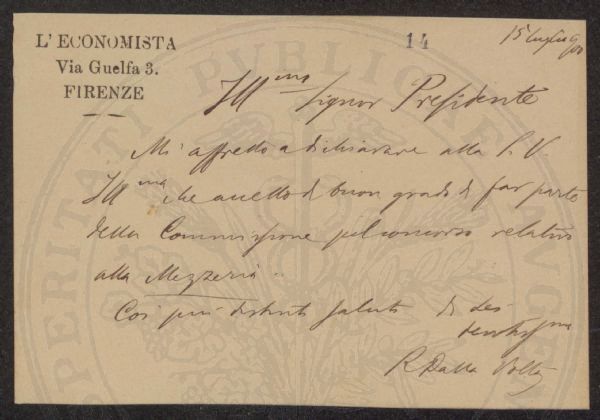 L'ECONOMISTA
Via Guelfa 3.
FIRENZE
14
15 luglio 90
Ill.mo Signor Presidente
Mi affretto a dichiarare alla S. V.
Ill.ma che accetto di buon grado di far parte
della Commissione pel concorso relativo
alla Mezzeria.
Coi più distinti saluti di lei
devotiss.mo
R. Dalla Volta
PROSPERITATI PUBLICAE AUGENDAE